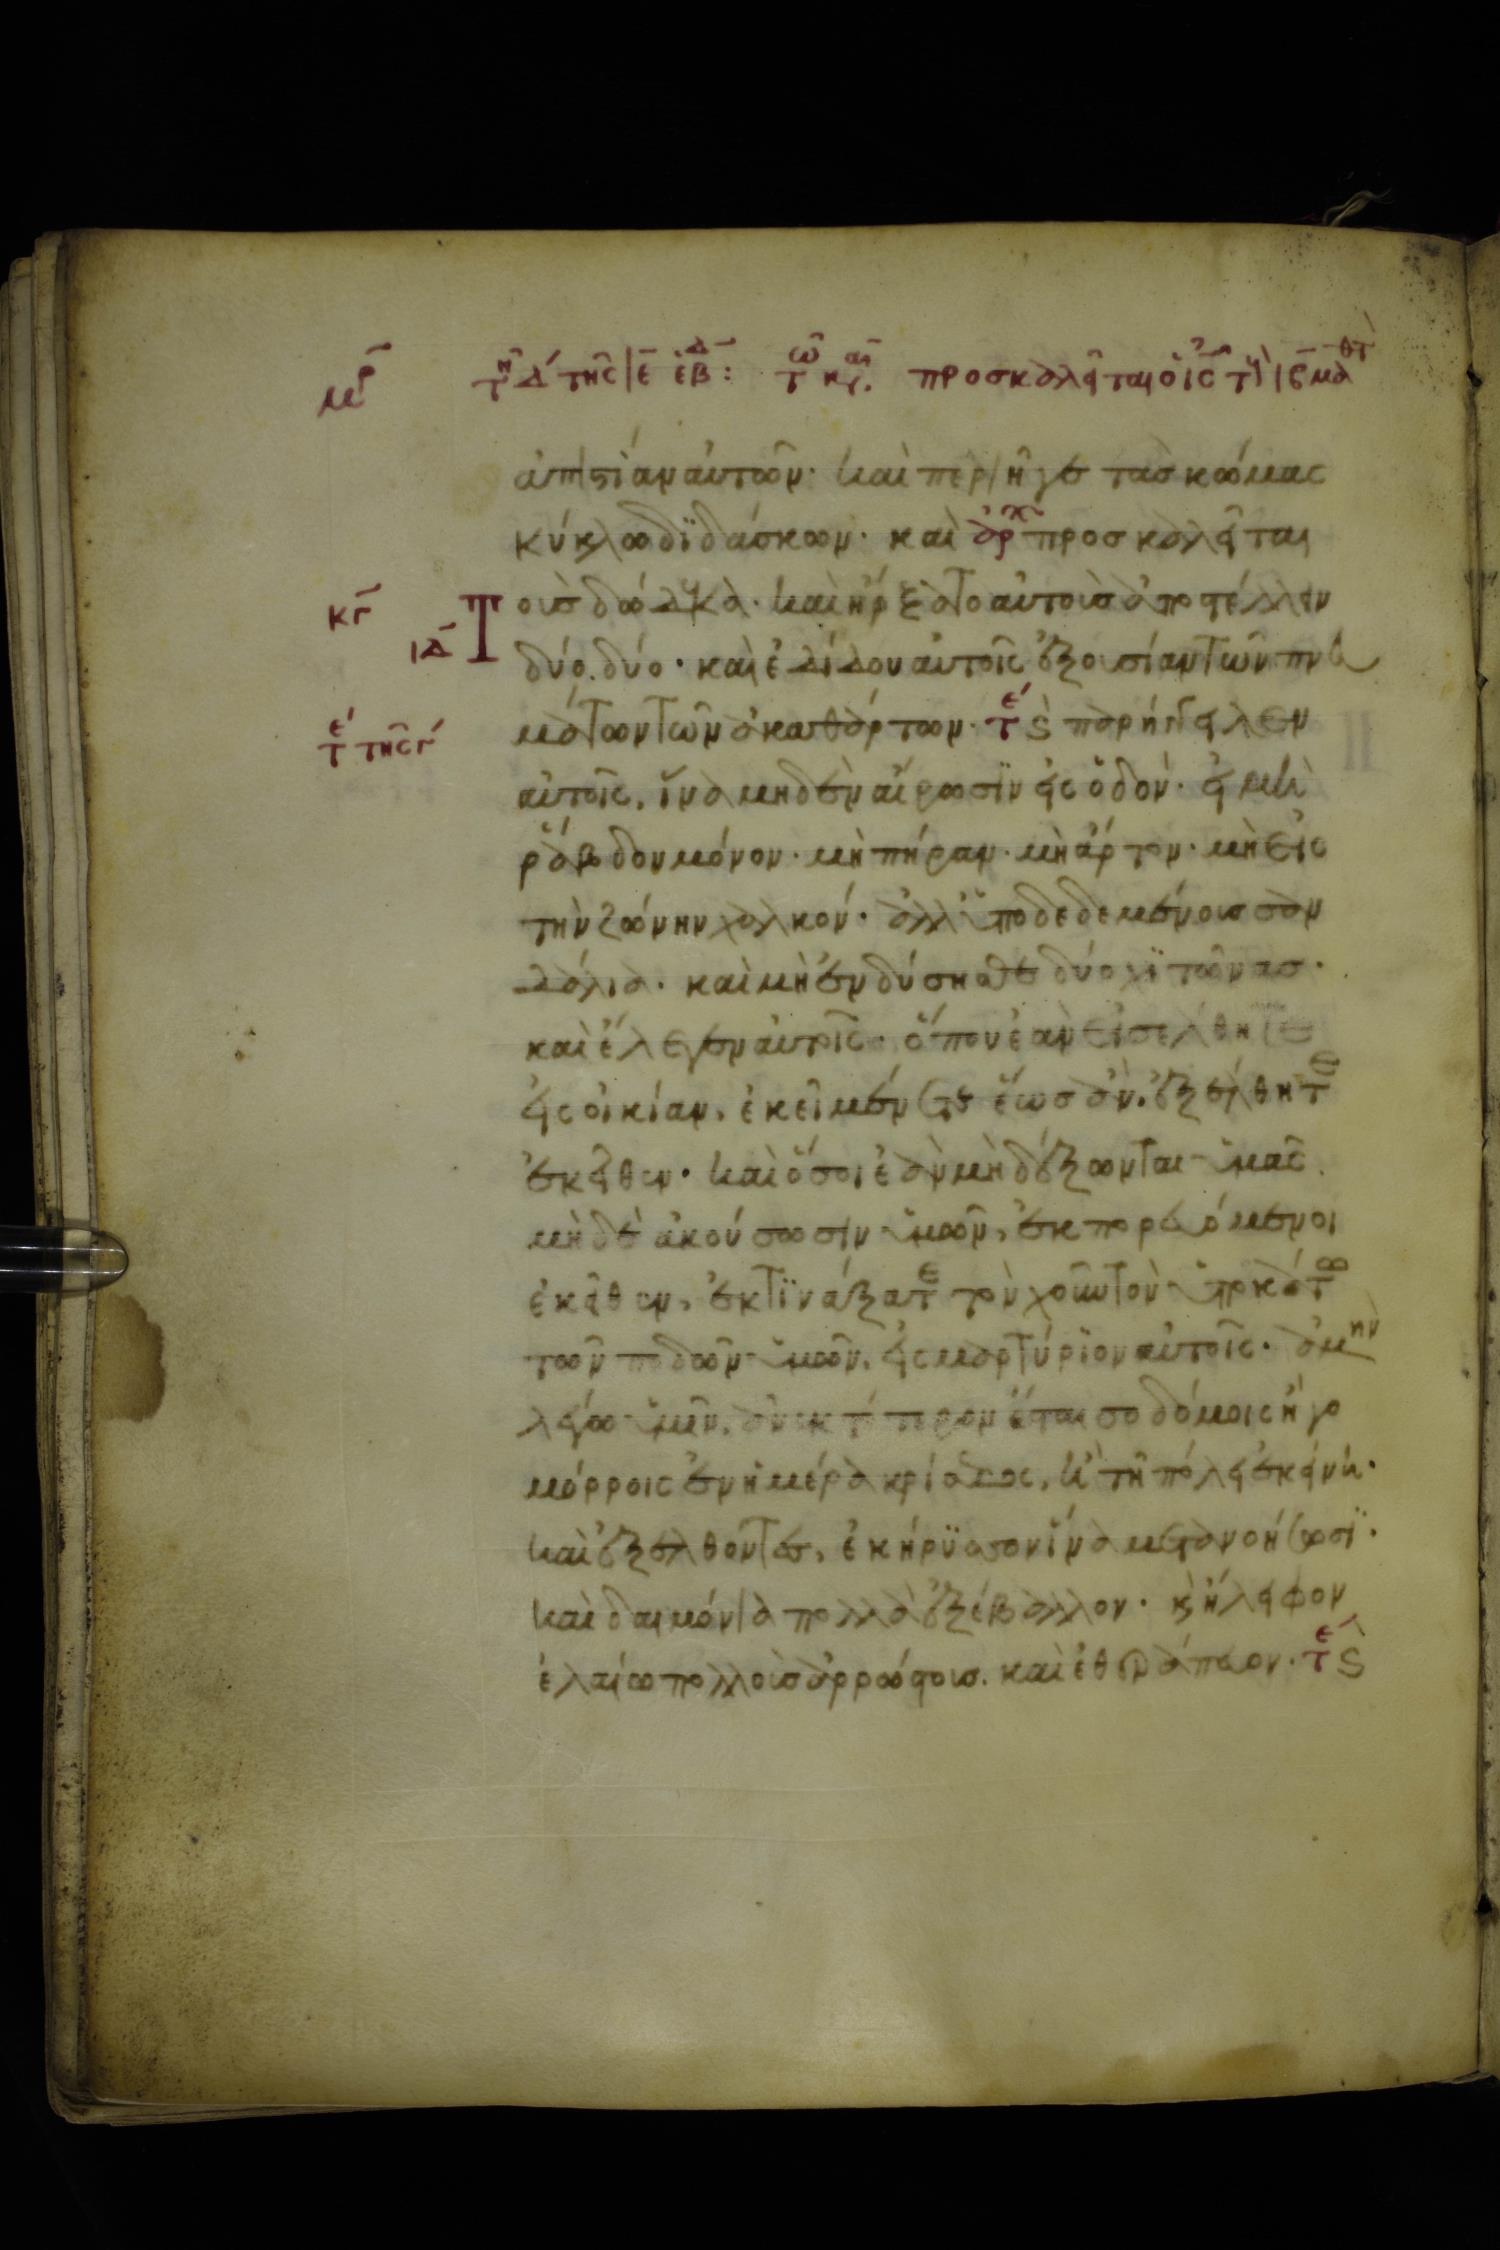 τῇ δ τῆς ιε ἑβδ: τῷ καιρ. προσκαλεῖται ὁ ις τοὺς ιβ μαθτ
ἀπιστίαν αὐτῶν· καὶ περιῆγε τὰς κώμας
κύκλω διδάσκων· καὶ ἀρχ προσκαλεῖται
κγ
ιδ
τοὺς δώδεκα· καὶ ἤρξατο αὐτοὺς ἀποστέλλειν
δύο δύο· καὶ ἐδίδου αὐτοῖς ἐξουσίαν τῶν πνευ
τε τῆς γ
μάτων τῶν ἀκαθάρτων· τε S παρήγγειλεν
αὐτοῖς, ἵνα μηδὲν αἴρωσιν εἰς ὁδόν· εἰ μὴ
ῥάβδον μόνον· μὴ πήραν· μὴ ἄρτον· μὴ εἰς
τὴν ζώνην χαλκόν· ἀλλ' ὑποδεδεμένους σαν
δάλια· καὶ μὴ ἐνδύσησθε δύο χιτῶνας·
καὶ ἔλεγεν αὐτοῖς· ὅπου ἐὰν εἰσέλθητε
εἰς οἰκίαν, ἐκεῖ μένετε ἕως ἂν ἐξέλθητε
ἐκεῖθεν· καὶ ὅσοι ἐὰν μὴ δέξωνται ὑμᾶς
μηδὲ ἀκούσωσιν ὑμῶν, ἐκπορευόμενοι
ἐκεῖθεν, ἐκτινάξατε τὸν χοῦν τὸν ὑποκάτω
τῶν ποδῶν ὑμῶν, εἰς μαρτύριον αὐτοῖς· ἀμὴν
λέγω ὑμῖν, ἀνεκτότερον ἔσται σοδόμοις ἢ γο
μόρροις ἐν ἡμέρα κρίσεως, ἢ τῇ πόλει ἐκείνη·
καὶ ἐξελθόντες, ἐκήρυσσον ἵνα μετανοήσωσι·
καὶ δαιμόνια πολλὰ ἐξέβαλλον· κ ἤλειφον
ἐλαίω πολλοὺς ἀρρώστους· καὶ ἐθεράπευον· τε S